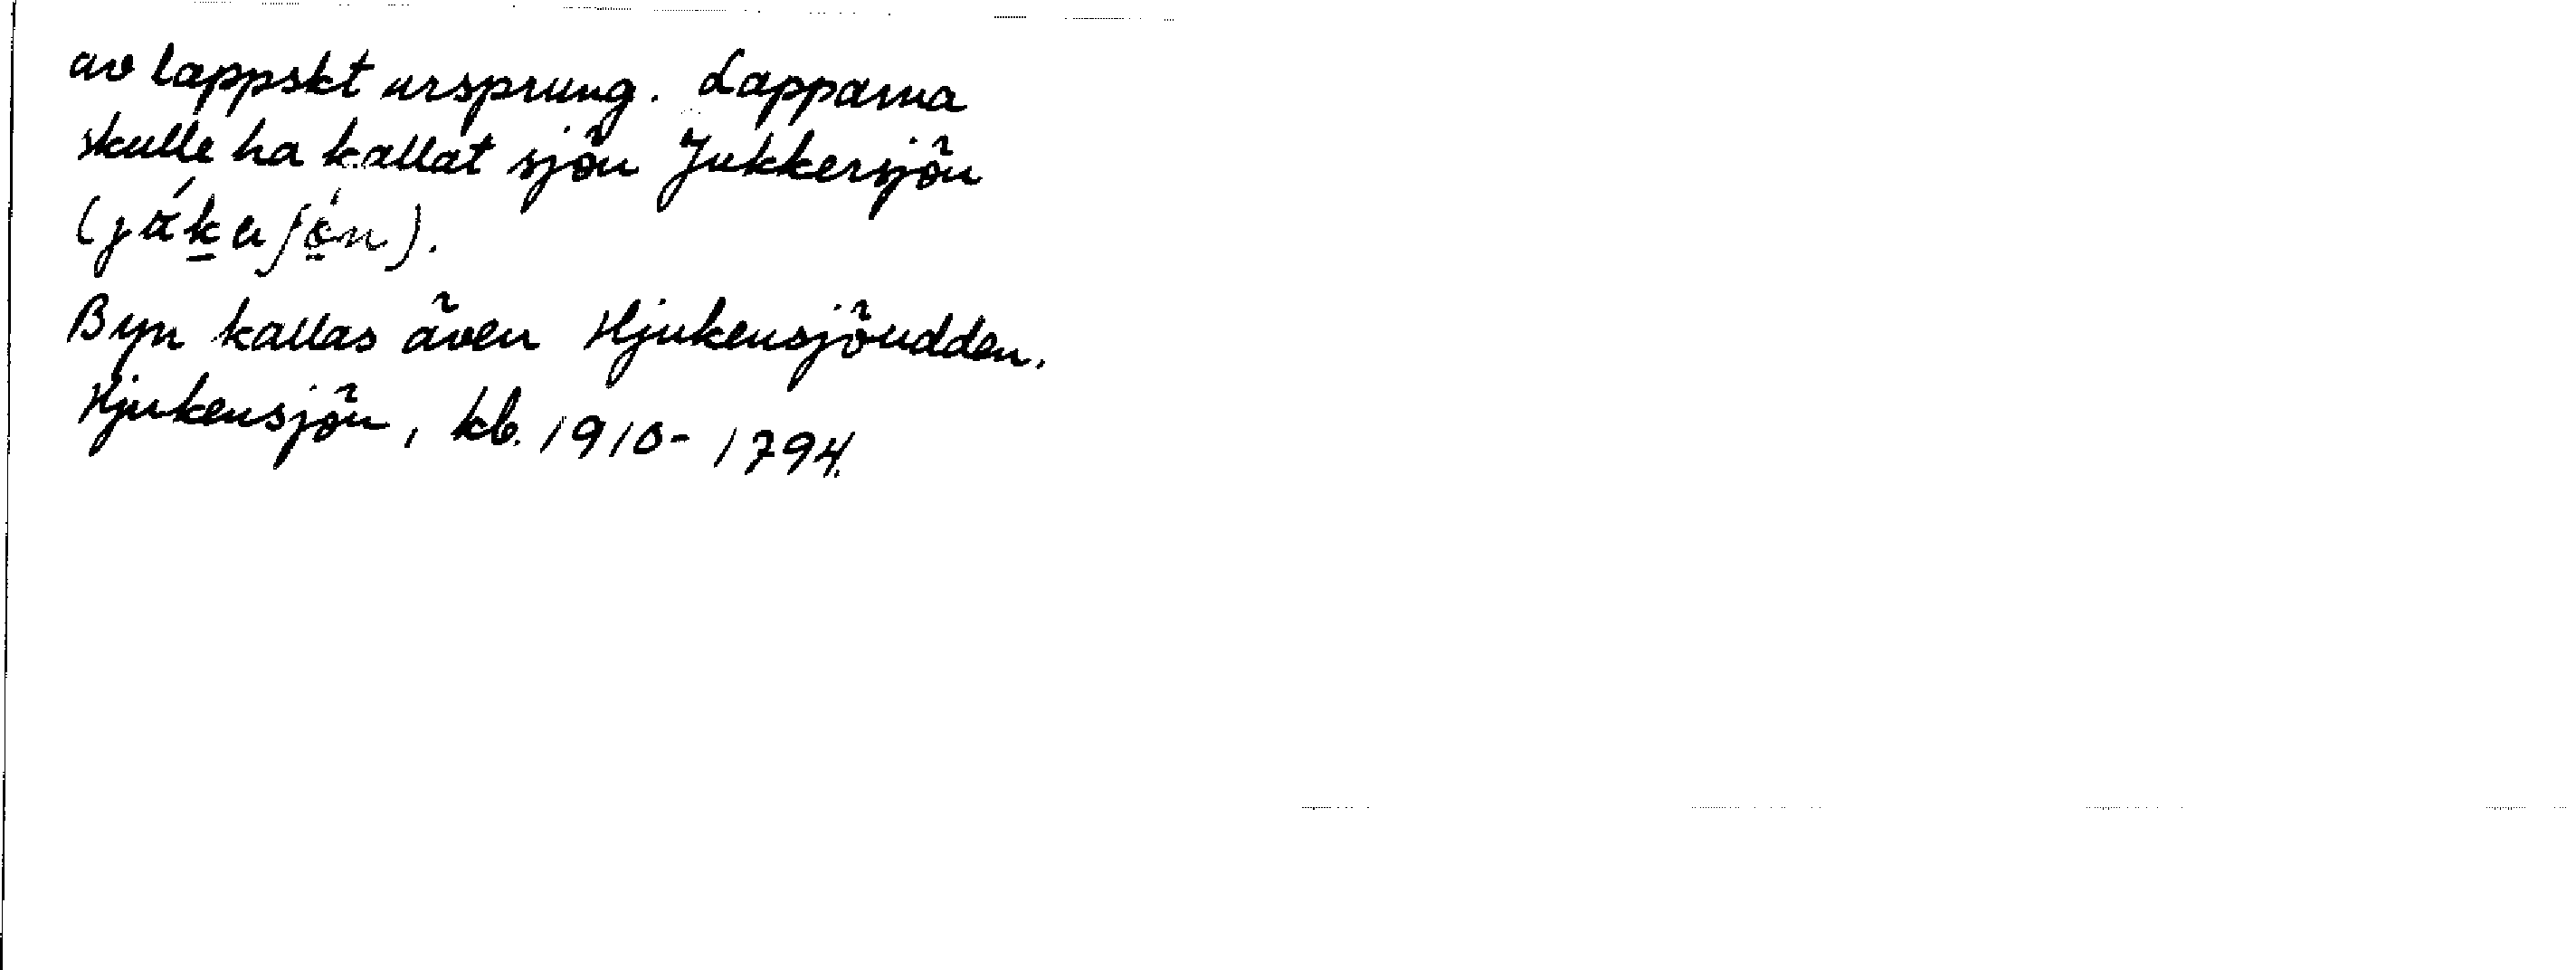 av lappskt ursprung. Lapparna
skulle ha kallat sjön Jukkersjön
Byn kallas även Hjukensjöudden.
Hjukensjön, kb. 1910-1794.